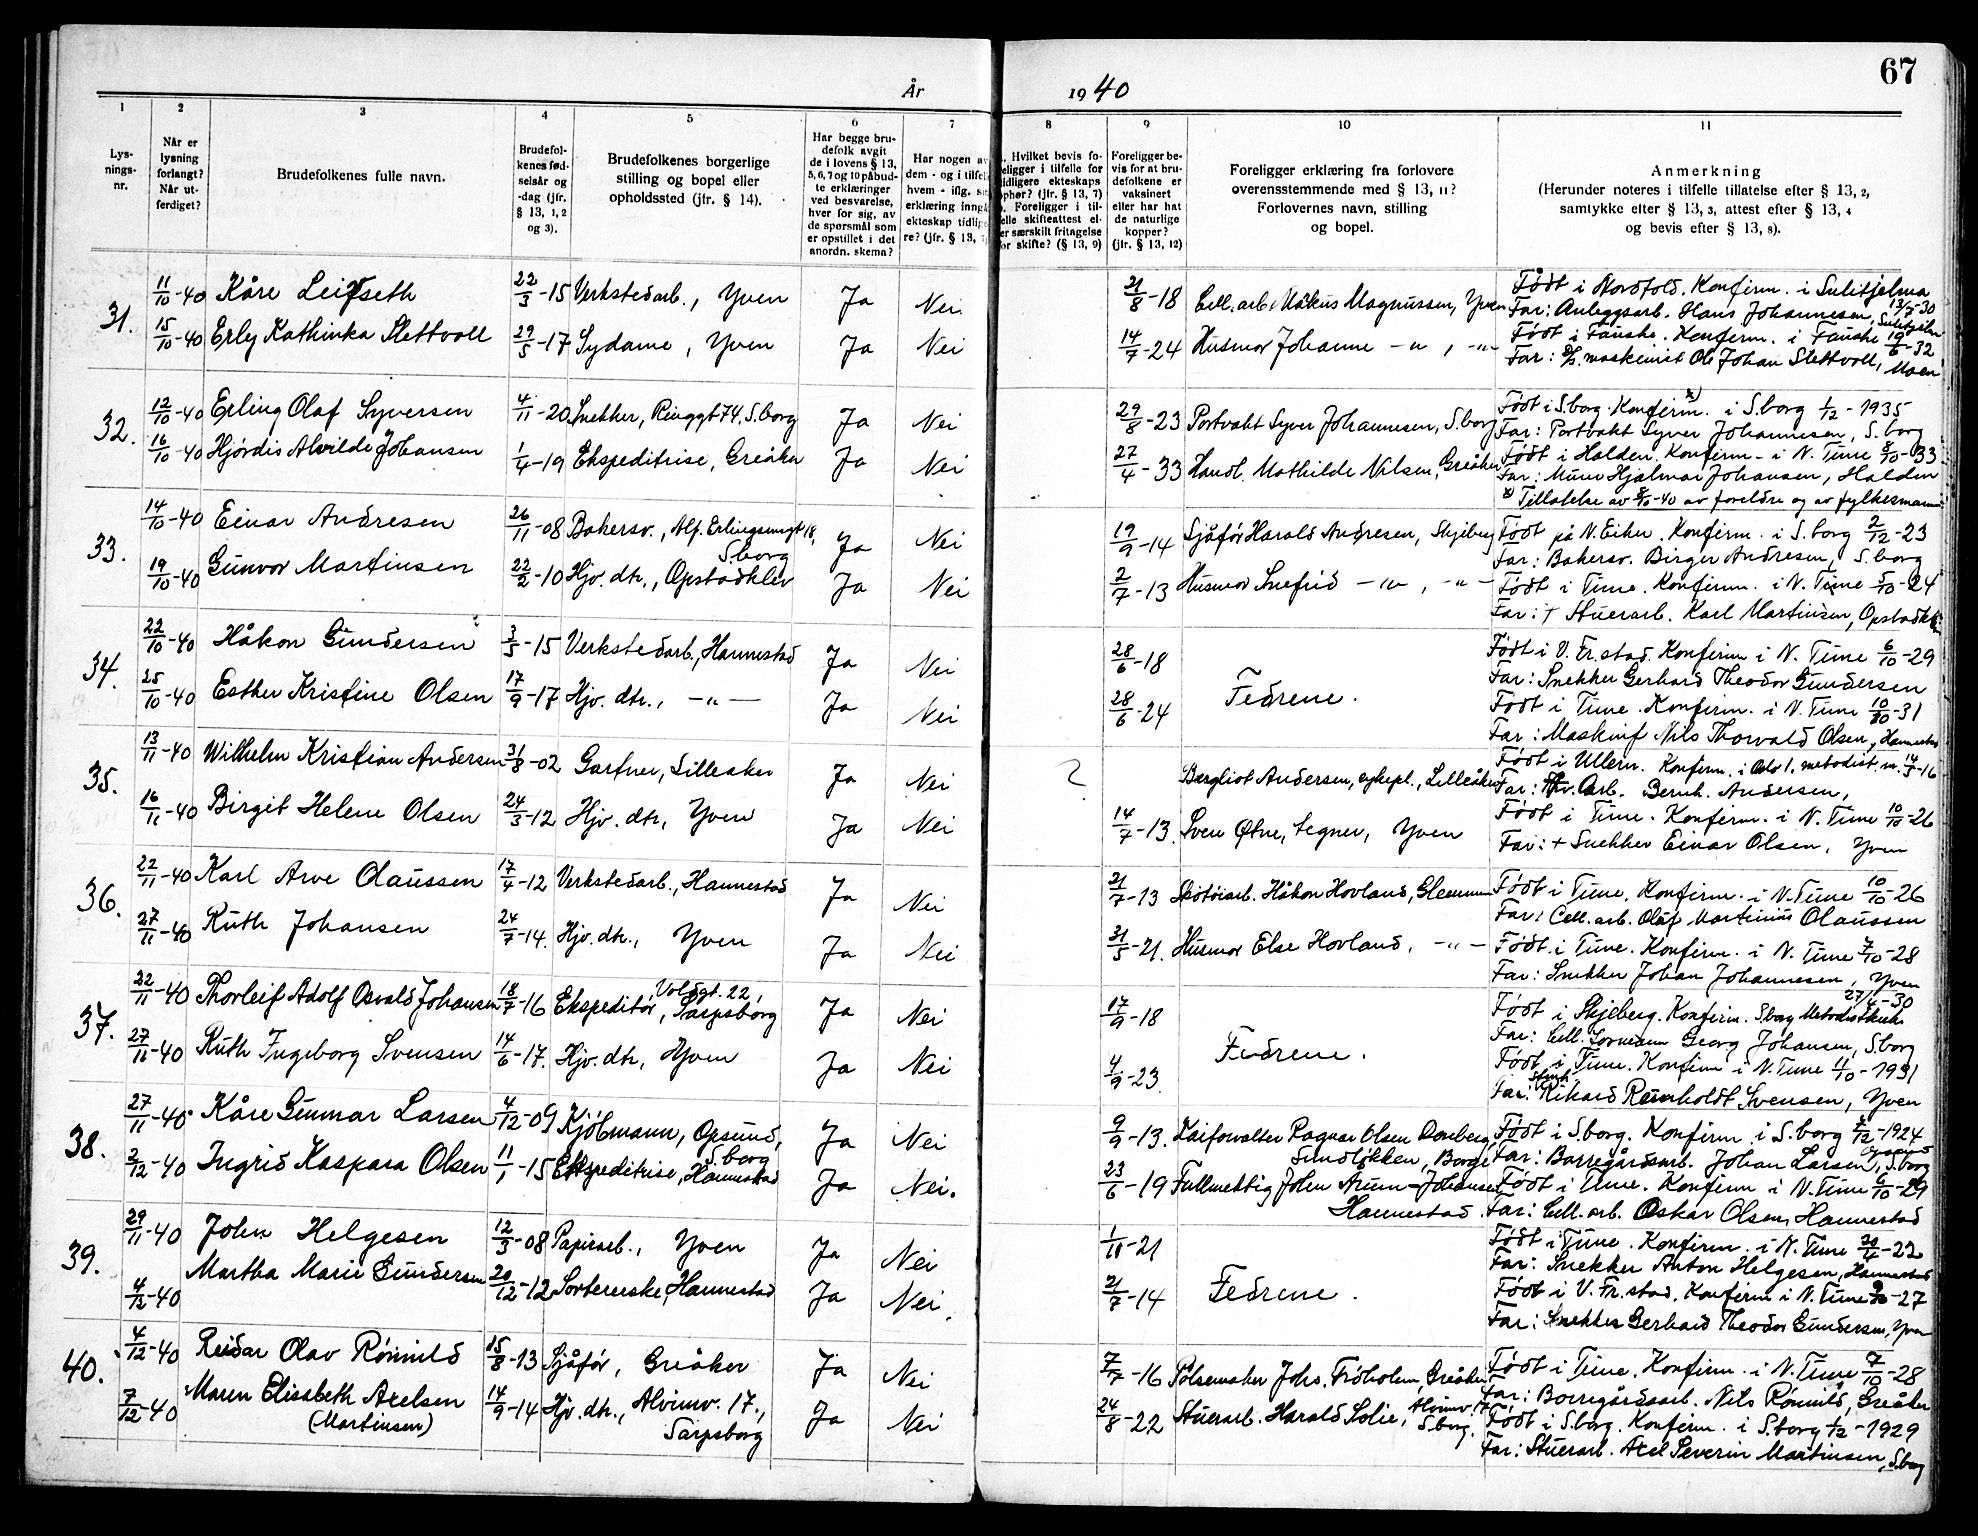 67
År 1940
1 2 3 4 5 6 7 8 9 10 11
Lysningsnr.
Når er lysning forlangt? Når utferdiget?
Brudefolkenes fulle navn.
Brudefolkenes fødselsår og -dag (jfr. § 13, 1, 2 og 3).
Brudefolkenes borgerlige stilling og bopel eller opholdssted (jfr. § 14).
Har begge brudefolk avgit de i lovens § 13, 5, 6, 7 og 10 påbudte erklæringer ved besvarelse, hver for sig, av de spørsmål som er opstillet i det anordn. skema?
Har nogen av dem - og i tilfelle hvem - iflg. erklæring inngå ekteskap tidligere? (jfr. § 13,
Hvilket bevis foreligger i tilfelle for tidligere ekteskaps ophør? (jfr. § 13, 7) Foreligger i tilfelle skifteattest eller særskilt fritagelse for skifte? (§ 13, 9)
Foreligger bevis for at brudefolkene er vaksinert eller har hat de naturlige kopper? (jfr. § 13, 12)
Foreligger erklæring fra forlovere overensstemmende med § 13, 11? Forlovernes navn, stilling og bopel.
Anmerkning (Herunder noteres i tilfelle tillatelse efter § 13, 2, samtykke efter § 13, 3, attest efter § 13, 4 og bevis efter § 13, 8).
31. 11/10-40 Kåre Leifseth 22/3-15 Verkstedarb., Yven Ja Nei 21/8-18 Cell.arb. Måkus Magnussen, Yven Født i Nordfold. Konfirm. i Sulitjelma 13/7-30
Far: Anleggsarb. Hans Johannesen, Sulitjelma
15/10-40 Erly Kathinka Slettvoll 29/5-17 Sydame, Yven Ja Nei 14/7-24 Husmor Johanne -"-, -"- Født i Fauske. Konfirm. i Fauske 19/6-32
Far: maskinist Ole Johan Slettvoll, Moen
32. 12/10-40 Erling Olaf Syversen 4/11-20 Snekker, Ringgt 74, S.borg Ja Nei 29/8-23 Portvakt Syver Johannesen, S.borg Født i S.borg. Konfirm. x) i S.borg 1/12-1935
Far: Portvakt Syver Johannesen, S.borg
16/10-40 Hjørdis Alvilde Johansen 1/4-19 Ekspeditrise, Greåker Ja Nei 27/4-33 Handl. Mathilde Nilsen, Greåker Født i Halden. Konfirm. i N. Tune 8/10-33
Far: Murer Hjalmar Johansen, Halden
x) Tillatelse av 8/10-40 av foreldre og av fylkesmann
33. 14/10-40 Einar Andresen 26/11-08 Bakersv., Alf. Erlingsensgt 18, S.borg Ja Nei 19/9-14 Sjåfør Harald Andresen, Skjeberg Født på N. Eiker. Konfirm. i S.borg 2/12-23
Far: Bakersv. Birger Andresen, S.borg
19/10-40 Gunvor Martinsen 22/2-10 Hjv. dtr., Opstadklev Ja Nei 2/7-13 Husmor Snefrid -"-, -"- Født i Tune. Konfirm. i N. Tune 5/10-24
Far: † Stuerarb. Karl Martinsen, Opstadkl
34. 22/10-40 Håkon Gundersen 3/5-15 Verkstedarb., Hannestad Ja Nei 28/6-18 Fedrene. Født i V. Fr.stad. Konfirm i N. Tune 6/10-29
Far: Snekker Gerhard Theodor Gundersen
25/10-40 Esther Kristine Olsen 17/9-17 Hjv. dtr., -"- Ja Nei 28/6-24 Født i Tune. Konfirm. i N. Tune 10/10-31
Far: Maskinf Nils Thorvald Olsen, Hannestad
35. 13/11-40 Wilhelm Kristian Andersen 31/8-02 Gartner, Lilleaker Ja Nei ? Bergliot Andersen, sykepl., Lilleaker Født i Ullern. Konfirm. i Oslo 1. metodist m. 14/5-16
Far: Arb. Bernh. Andersen,
16/11-40 Birgit Helene Olsen 24/3-12 Hjv. dtr., Yven Ja Nei 14/7-13. Sven Øtne, tegner, Yven Født i Tune. Konfirm. i N. Tune 10/10-26
Far: † Snekker Einar Olsen, Yven
36. 22/11-40 Karl Arve Olaussen 17/4-12 Verkstedarb., Hannestad Ja Nei 21/7-13 Skotøiarb. Håkon Hovland, Glemmen Født i Tune. Konfirm. i N. Tune 10/10-26
Far: Cell. arb. Olaf Martinius Olaussen
27/11-40 Ruth Johansen 24/7-14. Hjv. dtr., Yven Ja Nei 31/5-21. Husmor Else Hovland, -"- Født i Tune. Konfirm. i N. Tune 7/10-28
Far: Snekker Johan Johannesen, Yven
37. 22/11-40 Thorleif Adolf Osvald Johansen 18/7-16 Ekspeditør, Voldgt. 22, Sarpsborg Ja Nei 17/9-18 Fedrene. Født i Skjeberg. Konfirm. S.borg Metodistkirke 27/4-30
Far: Cell. formann Georg Johansen, S.borg
27/11-40 Ruth Ingeborg Svensen 14/6-17. Hjv. dtr., Yven Ja Nei 4/9-23 Født i Tune. Konfirm i N. Tune 11/10-1931
Far: Rikard Reinholdt Svensen, Yven
38. 27/11-40 Kåre Gunnar Larsen 4/12-09 Kjøbmann, Opsund, S.borg Ja Nei 9/9-13. Ragnar Olsen Sundløkken, Borge Født i S.borg. Konfirm i S.borg 7/12-1924
Far: Borregårdsarb. Johan Larsen, Opsund S.borg
2/12-40 Ingrid Kaspara Olsen 11/1-15 Ekspeditrise, Hannestad Ja Nei. 23/6-19 Fullmektig John Arum-Johansen Hannestad. Født i Tune. Konfirm i N. Tune 6/10-29
Far: Cell. arb. Oskar Olsen, Hannestad
39. 29/11-40 John Helgesen 12/3-08 Papirarb., Yven Ja Nei 1/11-21 Fedrene. Født i Tune. Konfirm. i N. Tune 30/4-22
Far: Snekker Anton Helgesen, Hannestad
4/12-40 Martha Marie Gundersen 20/12-12 Sortererske, Hannestad Ja Nei 21/7-14 Født i V. Fr.stad, Konfirm i N. Tune 9/10-27
Far: Snekker Gerhard Theodor Gundersen, Yven
40. 4/12-40 Reidar Olav Rømuld 15/8-13 Sjåfør, Greåker Ja Nei 7/7-16 Pølsemaker Johs. Frøholm, Greåker Født i Tune. Konfirm. i N. Tune 7/10-28
Far: Borregårdsarb. Nils Rømuld, Greåker
7/12-40 Maren Elisabeth Axelsen (Martinsen) 14/9-14 Hjv. dtr., Alvimv. 17., Sarpsborg Ja Nei 24/8-22 Stuerarb. Harald Solie, Alvimv. 17, S.borg. Født i S.borg. Konfirm. i S.borg 1/12-1929
Far: Stuerarb. Axel Severin Martinsen, S.borg